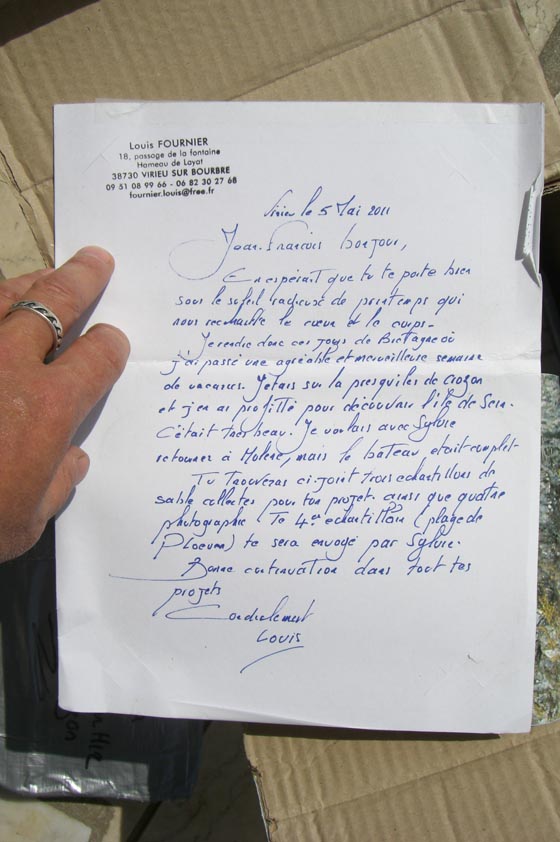 Louis FOURNIER
18, passage de la fontaine
Hameau de Layat
38730 VIRIEU SUR BOURBRE
09 51 08 99 66 - 06 82 30 27 68
fournier.louis@free.fr
le 5 Mai 2011
Jean-François bonjour,
En espérant que tu te porte bien
sous le soleil radieuse de printemps qui
nous rechauffe le cœur et le corps-
Je rentre donc ces jours de Bretagne où
j'ai passé une agréable et merveilleuse semaine
de vacances. J'étais sur la presqu'iles de Crozon
et j'en ai profitté pour découvrir l'île de Sein.
C'était très beau. Je voulais avec Sylvie
retourner à Molène, mais le bateau était complet-
Tu trouveras ci-joint trois échantillons de
sable collectés pour ton projet. ainsi que quatre
photographie. Te 4er echantillon (plage de
Ploeven) te sera envoyé par Sylvie-
Bonne continuation dans tout tes
projets
Cordialement
Louis